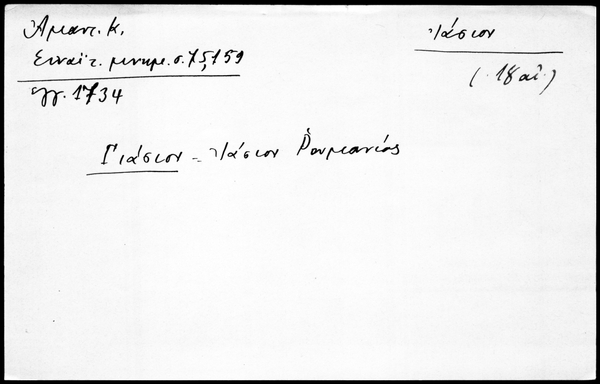 Ἀμαντ. Κ.
Σιναϊτ. μνημ. σ. 75, 159
ἔγγ. 1734
Ἰάσιον
(. 18 αἰ.)
Γιάσιον = Ἰάσιον Ῥουμανίας